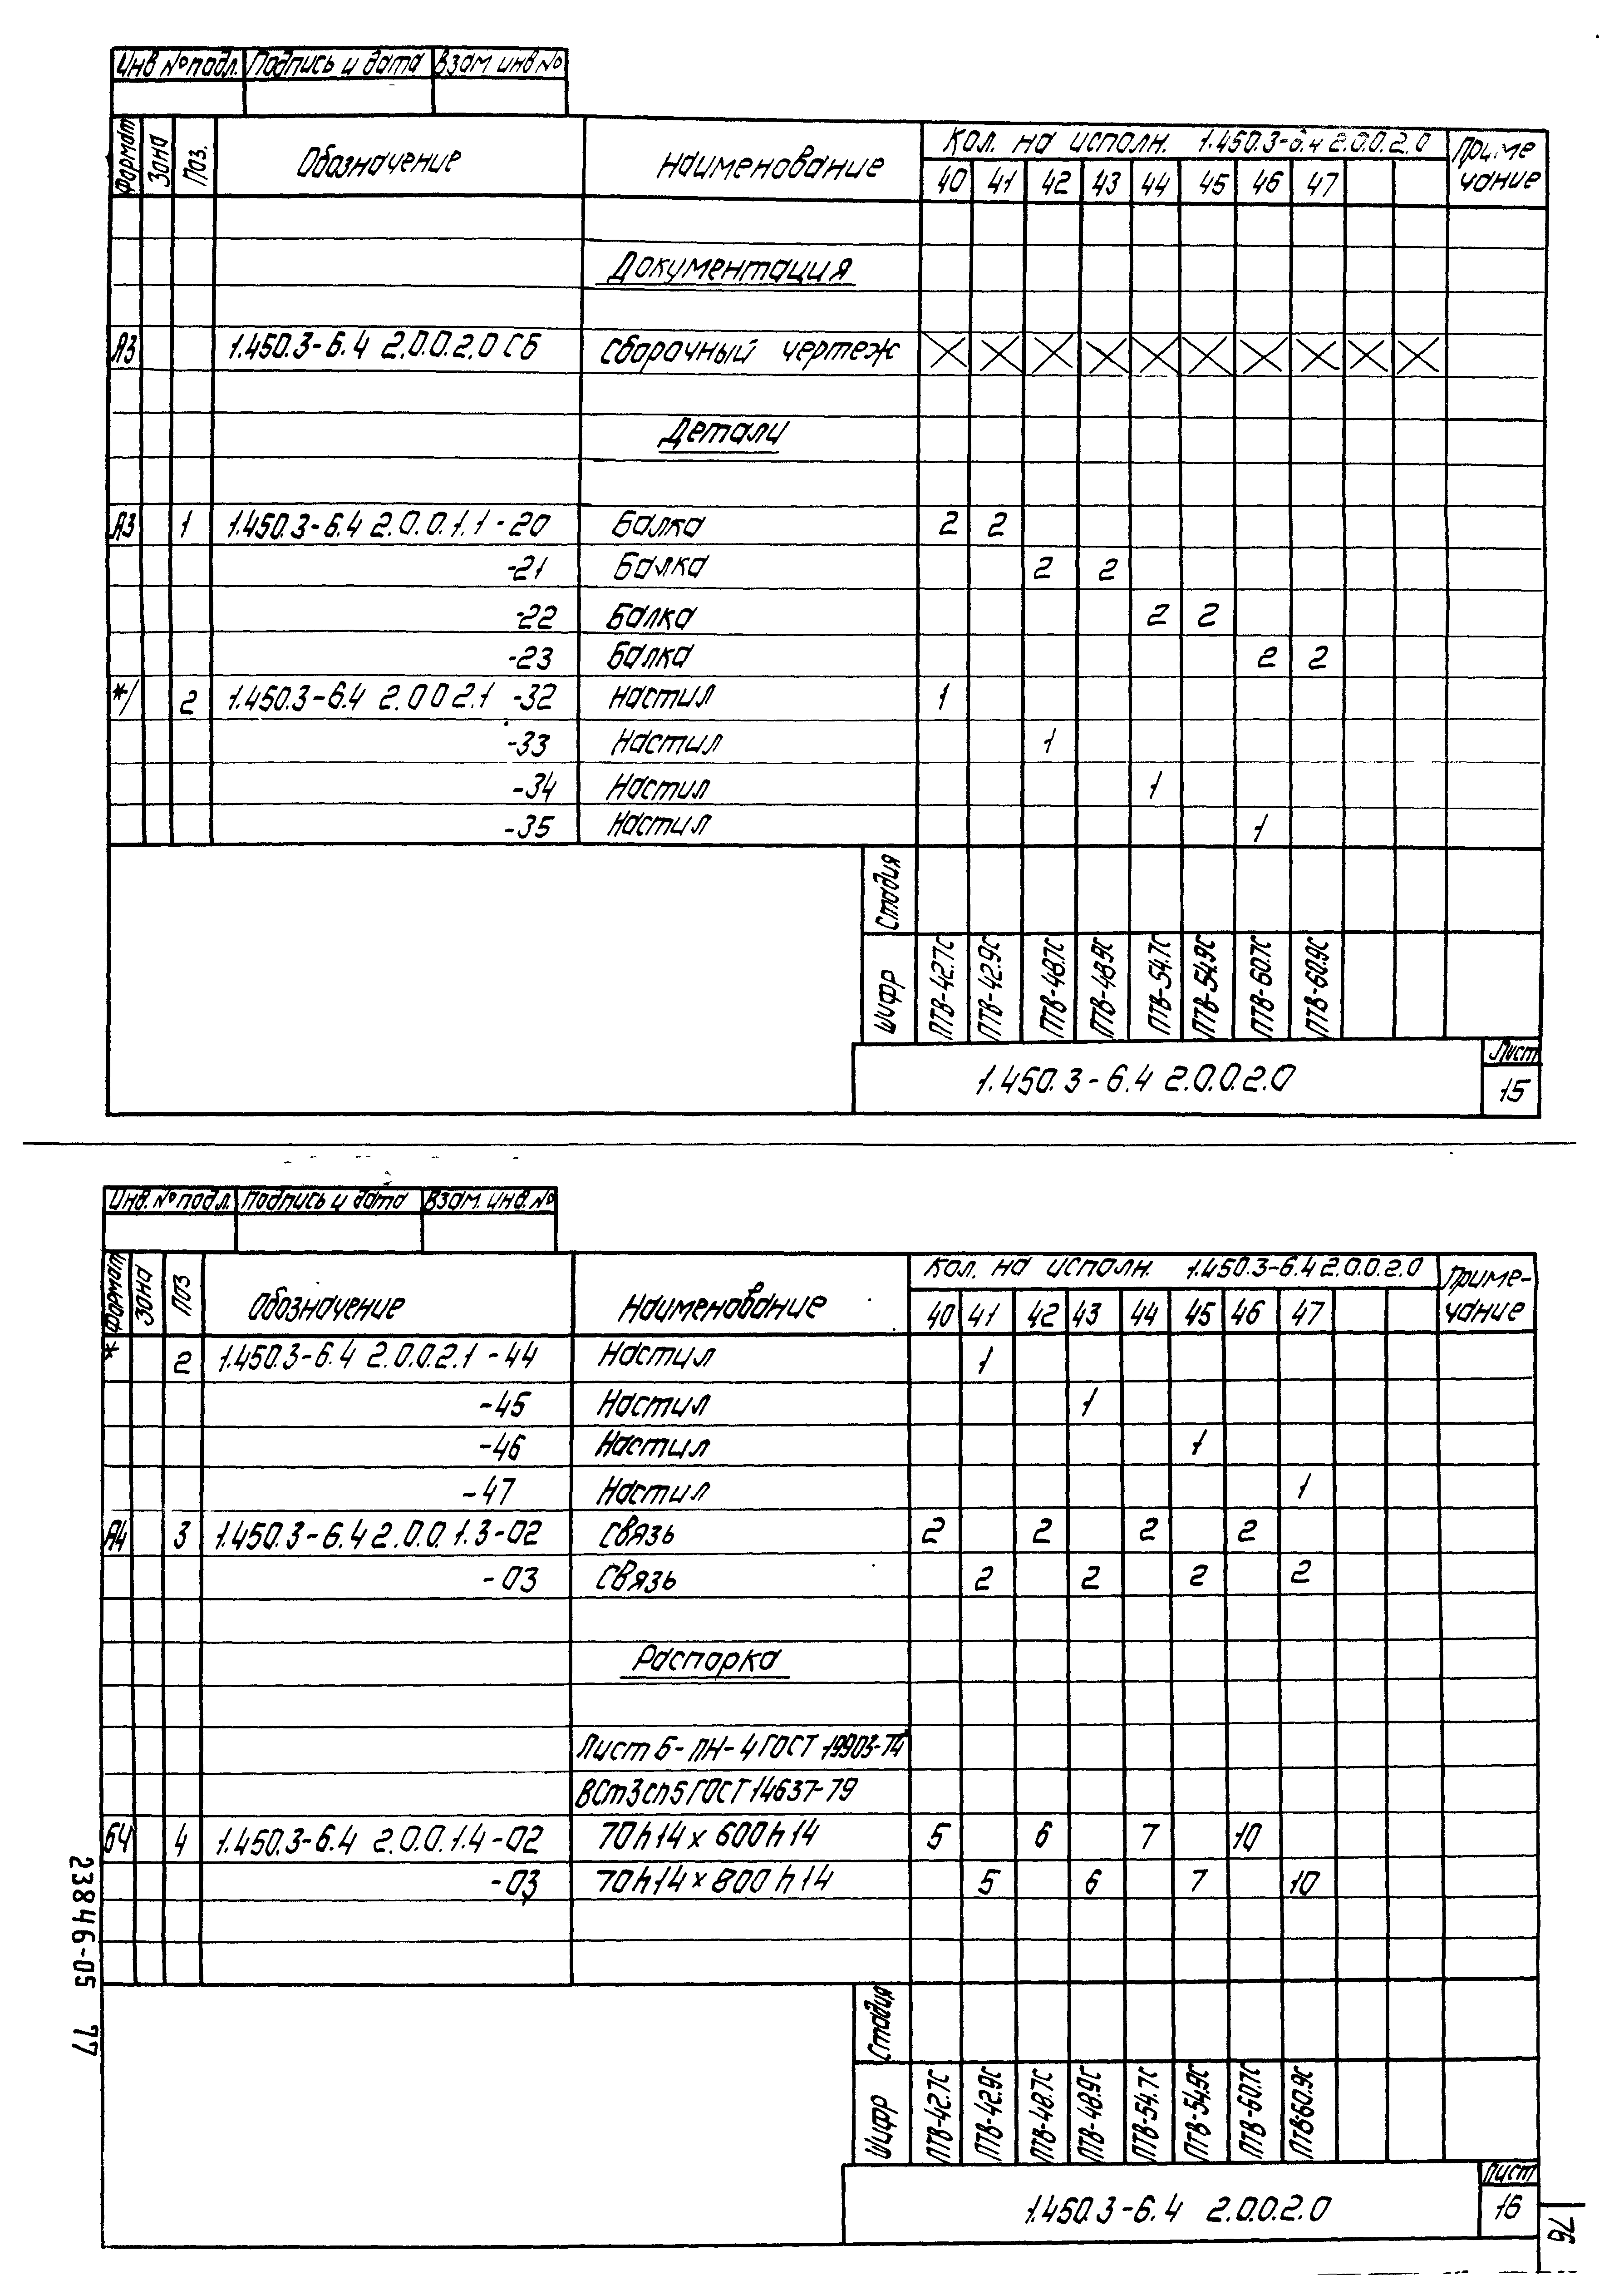 Инв №подл. Подпись и дата Взам инв №
Формат Зона Поз. Обозначение Наименование Кол. на исполн. 1.450.3-6.4 2.0.0.2.0 Приме
чание
40 41 42 43 44 45 46 47
Документация
А3 1.450.3-6.4 2.0.0.2.0 СБ Сборочный чертеж
Детали
А3 1 1.450.3-6.4 2.0.0.1.1-20 Балка 2 2
-21 Балка 2 2
-22 Балка 2 2
-23 Балка 2 2
*/ 2 1.450.3-6.4 2.0 0 2.1 -32 Настил 1
-33 Настил 1
-34 Настил 1
-35 Настил 1
Стадия
Шифр ПТВ-42.7С ПТВ-42.9С ПТВ-48.7С ПТВ-48.9С ПТВ-54.7С ПТВ-54.9С ПТВ-60.7С ПТВ-60.9С
1.450.3-6.4 2.0.0.2.0
Лист
15
Инв. №подл. Подпись и дата Взам. инв. №
Формат Зона Поз Обозначение Наименование Кол. на исполн. 1.450.3-6.4 2.0.0.2.0 Приме-
чание
40 41 42 43 44 45 46 47
* 2 1.450.3-6.4 2.0.0.2.1 -44 Настил 1
-45 Настил 1
-46 Настил 1
-47 Настил 1
А4 3 1.450.3-6.4 2.0.0.1.3-02 Связь 2 2 2 2
-03 Связь 2 2 2 2
Распорка
Лист Б-ПН-4 ГОСТ 19903-74
ВСт3сп5 ГОСТ 14637-79
БЧ 4 1.450.3-6.4 2.0.0.1.4-02 70h14 х 600h14 5 6 7 10
-03 70h14 х 800h14 5 6 7 10
Стадия
Шифр ПТВ-42.7С ПТВ-42.9С ПТВ-48.7С ПТВ-48.9С ПТВ-54.7С ПТВ-54.9С ПТВ-60.7С ПТВ60.9С
1.450.3-6.4 2.0.0.2.0
Лист
16
23846-05 77
76